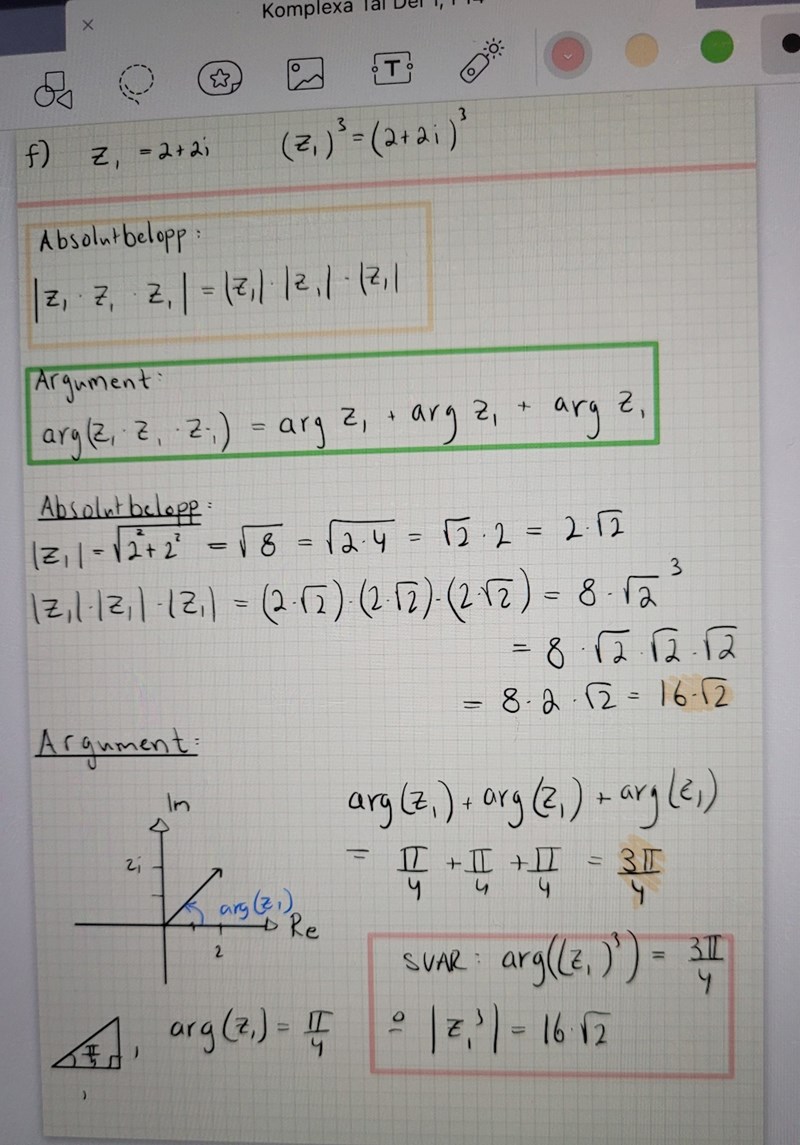 Komplexa Tal Del 1,
T
f) z₁ = 2+2i (z₁)³ = (2+2i)³
Absolutbelopp:
|z₁ · z₁ · z₁| = |z₁| · |z₁| · |z₁|
Argument:
arg(z₁ · z₁ · z₁) = arg z₁ + arg z₁ + arg z₁
Absolutbelopp:
|z₁| = √(2²+2²) = √8 = √(2·4) = √2 · 2 = 2·√2
|z₁|·|z₁|·|z₁| = (2·√2)·(2·√2)·(2·√2) = 8·√2³
= 8 · √2 · √2 · √2
= 8·2·√2 = 16·√2
Argument:
Im
2i
arg(z₁)
Re
2
arg(z₁) + arg(z₁) + arg(z₁)
= π/4 + π/4 + π/4 = 3π/4
1
1
arg(z₁) = π/4
SVAR: arg((z₁)³) = 3π/4
o |z₁³| = 16·√2